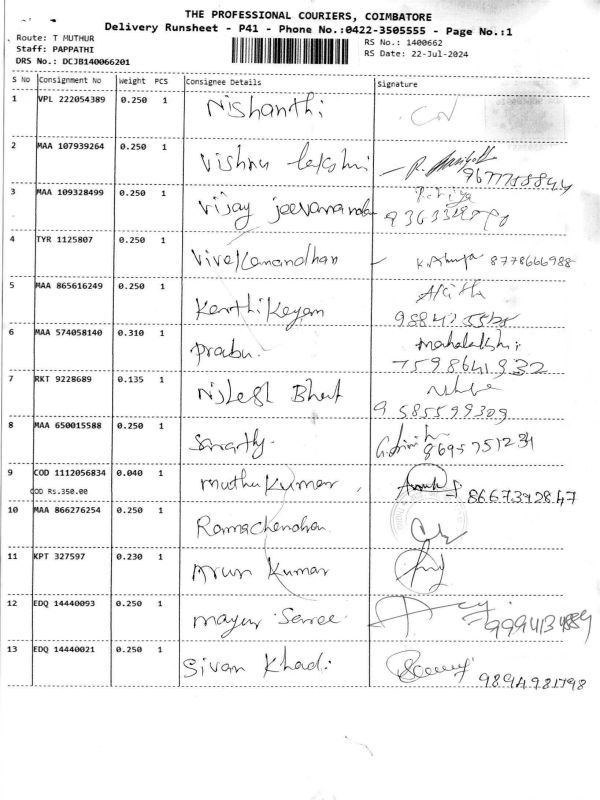 THE PROFESSIONAL COURIERS, COIMBATORE
Delivery Runsheet - P41 - Phone No.:0422-3505555 - Page No.:1
Route: T MUTHUR
Staff: PAPPATHI
DRS No.: DCJB140066201
RS No.: 1400662
RS Date: 22-Jul-2024
S No Consignment No Weight PCS Consignee Details Signature
1 VPL 222054389 0.250 1 Nishanthi
2 MAA 107939264 0.250 1 Vishnu lakshmi
9677758844
3 MAA 109328499 0.250 1 Vijay jeevanandan P. Priya
4 TYR 1125807 0.250 1 Vivekanandhan 8778666988
5 MAA 865616249 0.250 1 Karthikeyan
6 MAA 574058140 0.310 1 Prabu. Mahalakshmi
7598641332
7 RKT 9228689 0.135 1 Nilesh Bhat
9585599309
8 MAA 650015588 0.250 1 Sarathy. 8695751231
9 COD 1112056834 0.040 1 Muthu Kumar, 8667392847
COD Rs.350.00
10 MAA 866276254 0.250 1 Ramachandran
11 KPT 327597 0.230 1 Arun Kumar
12 EDQ 14440093 0.250 1 Mayur Saree
13 EDQ 14440021 0.250 1 Sivan Khadi
9894981798